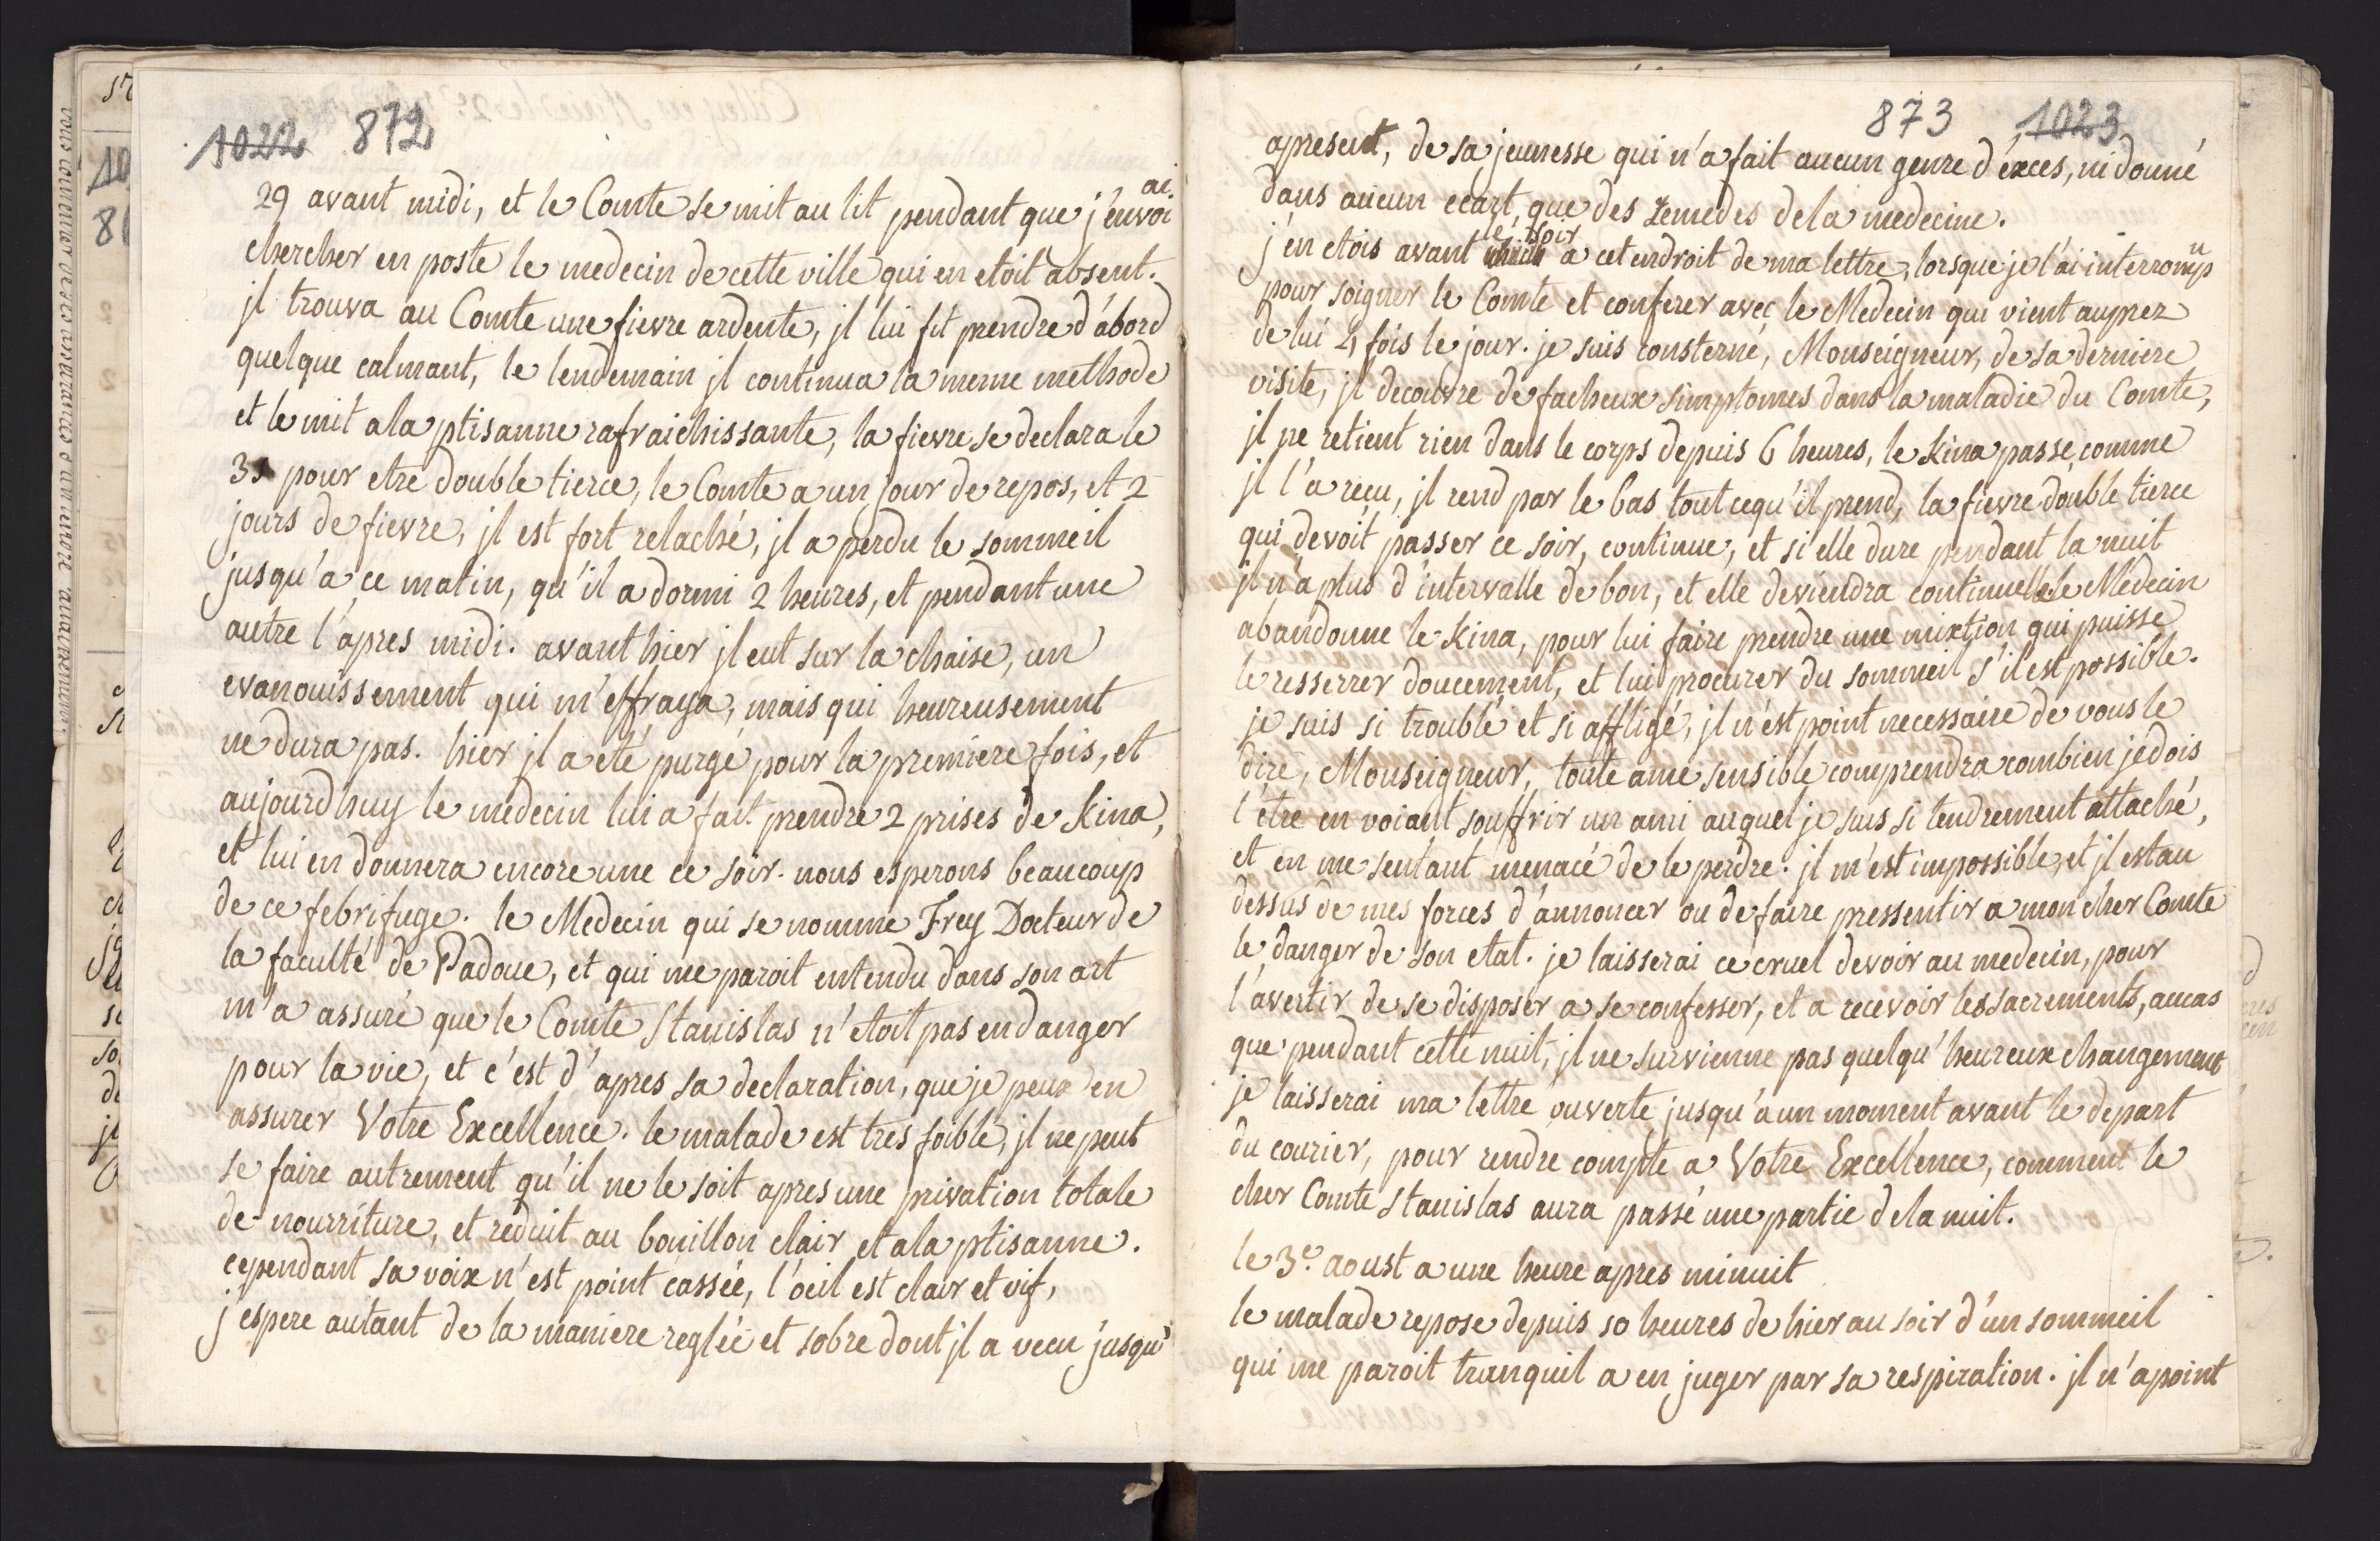 1022 872
29 avant midi, et le Comte se mit au lit pendant que j'envoiai
chercher en poste le medecin de cette ville qui en etoit absent.
jl trouva au Comte une fievre ardente, jl lui fit prendre d'abord
quelque calmant, le lendemain jl continua la meme methode
et le mit a la ptisanne rafraichissante, la fievre se declara le
31 pour etre double tierce, le Comte a un jour de repos, et 2
jours de fievre, jl est fort relaché, jl a perdu le sommeil
jusqu'a ce matin, qu'il a dormi 2 heures, et pendant une
autre l'apres midi. avant hier jl eut sur la chaise, un
evanouissement qui m'effraya, mais qui heureusement
ne dura pas. hier jl a été purgé pour la premiere fois, et
aujourdhuy le medecin lui a fait prendre 2 prises de Kina,
et lui en donnera encore une ce soir. nous esperons beaucoup
de ce febrifuge. le Medecin qui se nomme Frey Docteur de
la faculté de Padoue, et qui me paroit entendu dans son art
m'a assuré que le Comte Stanislas n'etoit pas en danger
pour la vie, et c'est d'apres sa declaration, que je peux en
assurer Votre Excellence. le malade est tres foible, jl ne peut
se faire autrement qu'il ne le soit apres une privation totale
de nourriture, et reduit au bouillon clair et a la ptisanne.
cependant sa voix n'est point cassée, l'oeil est clair et vif,
j'espere autant de la maniere reglée et sobre dont jl a vecu jusqu'
873 1023
apresent, de sa jeunesse qui n'a fait aucun genre d'éxces, ni donné
dans aucun ecart, que des remedes de la medecine.
j'en etois avant le soir a cet endroit de ma lettre, lorsque je l'ai interrompu
pour soigner le Comte et conferer avec le Medecin qui vient auprez
de lui 4 fois le jour. je suis consterné, Monseigneur, de sa derniere
visite, jl decouvre de facheux simptomes dans la maladie du Comte,
jl ne retient rien dans le corps depuis 6 heures, le Kina passe, comme
jl l'a reçu, jl rend par le bas tout ce qu'il prend, la fievre double tierce
qui devoit passer ce soir, continue, et si elle dure pendant la nuit
jl n'a plus d'intervalle de bon, et elle deviendra continuelle. le Medecin
abandonne le Kina, pour lui faire prendre une mixtion qui puisse
le resserrer doucement, et lui procurer du sommeil s'il est possible.
je suis si troublé et si affligé, jl n'est point necessaire de vous le
dire, Monseigneur, toute ame sensible comprendra combien je dois
l'etre en voiant souffrir un ami auquel je suis si tendrement attaché,
et en me sentant menacé de le perdre. jl m'est impossible, et jl est au
dessus de mes forces d'annoncer ou de faire pressentir a mon cher Comte
le danger de son etat. je laisserai ce cruel devoir au medecin, pour
l'avertir de se disposer a se confesser, et a recevoir les sacrements, au cas
que pendant cette nuit, jl ne survienne pas quelqu'heureux changement
je laisserai ma lettre ouverte jusqu'a un moment avant le depart
du courier, pour rendre compte a Votre Excellence, comment le
cher Comte Stanislas aura passé une partie d la nuit.
le 3e aoust a une heure apres minuit
le malade repose depuis 10 heures de hier au soir d'un sommeil
qui me paroit tranquil a en juger par sa respiration. jl n'a point